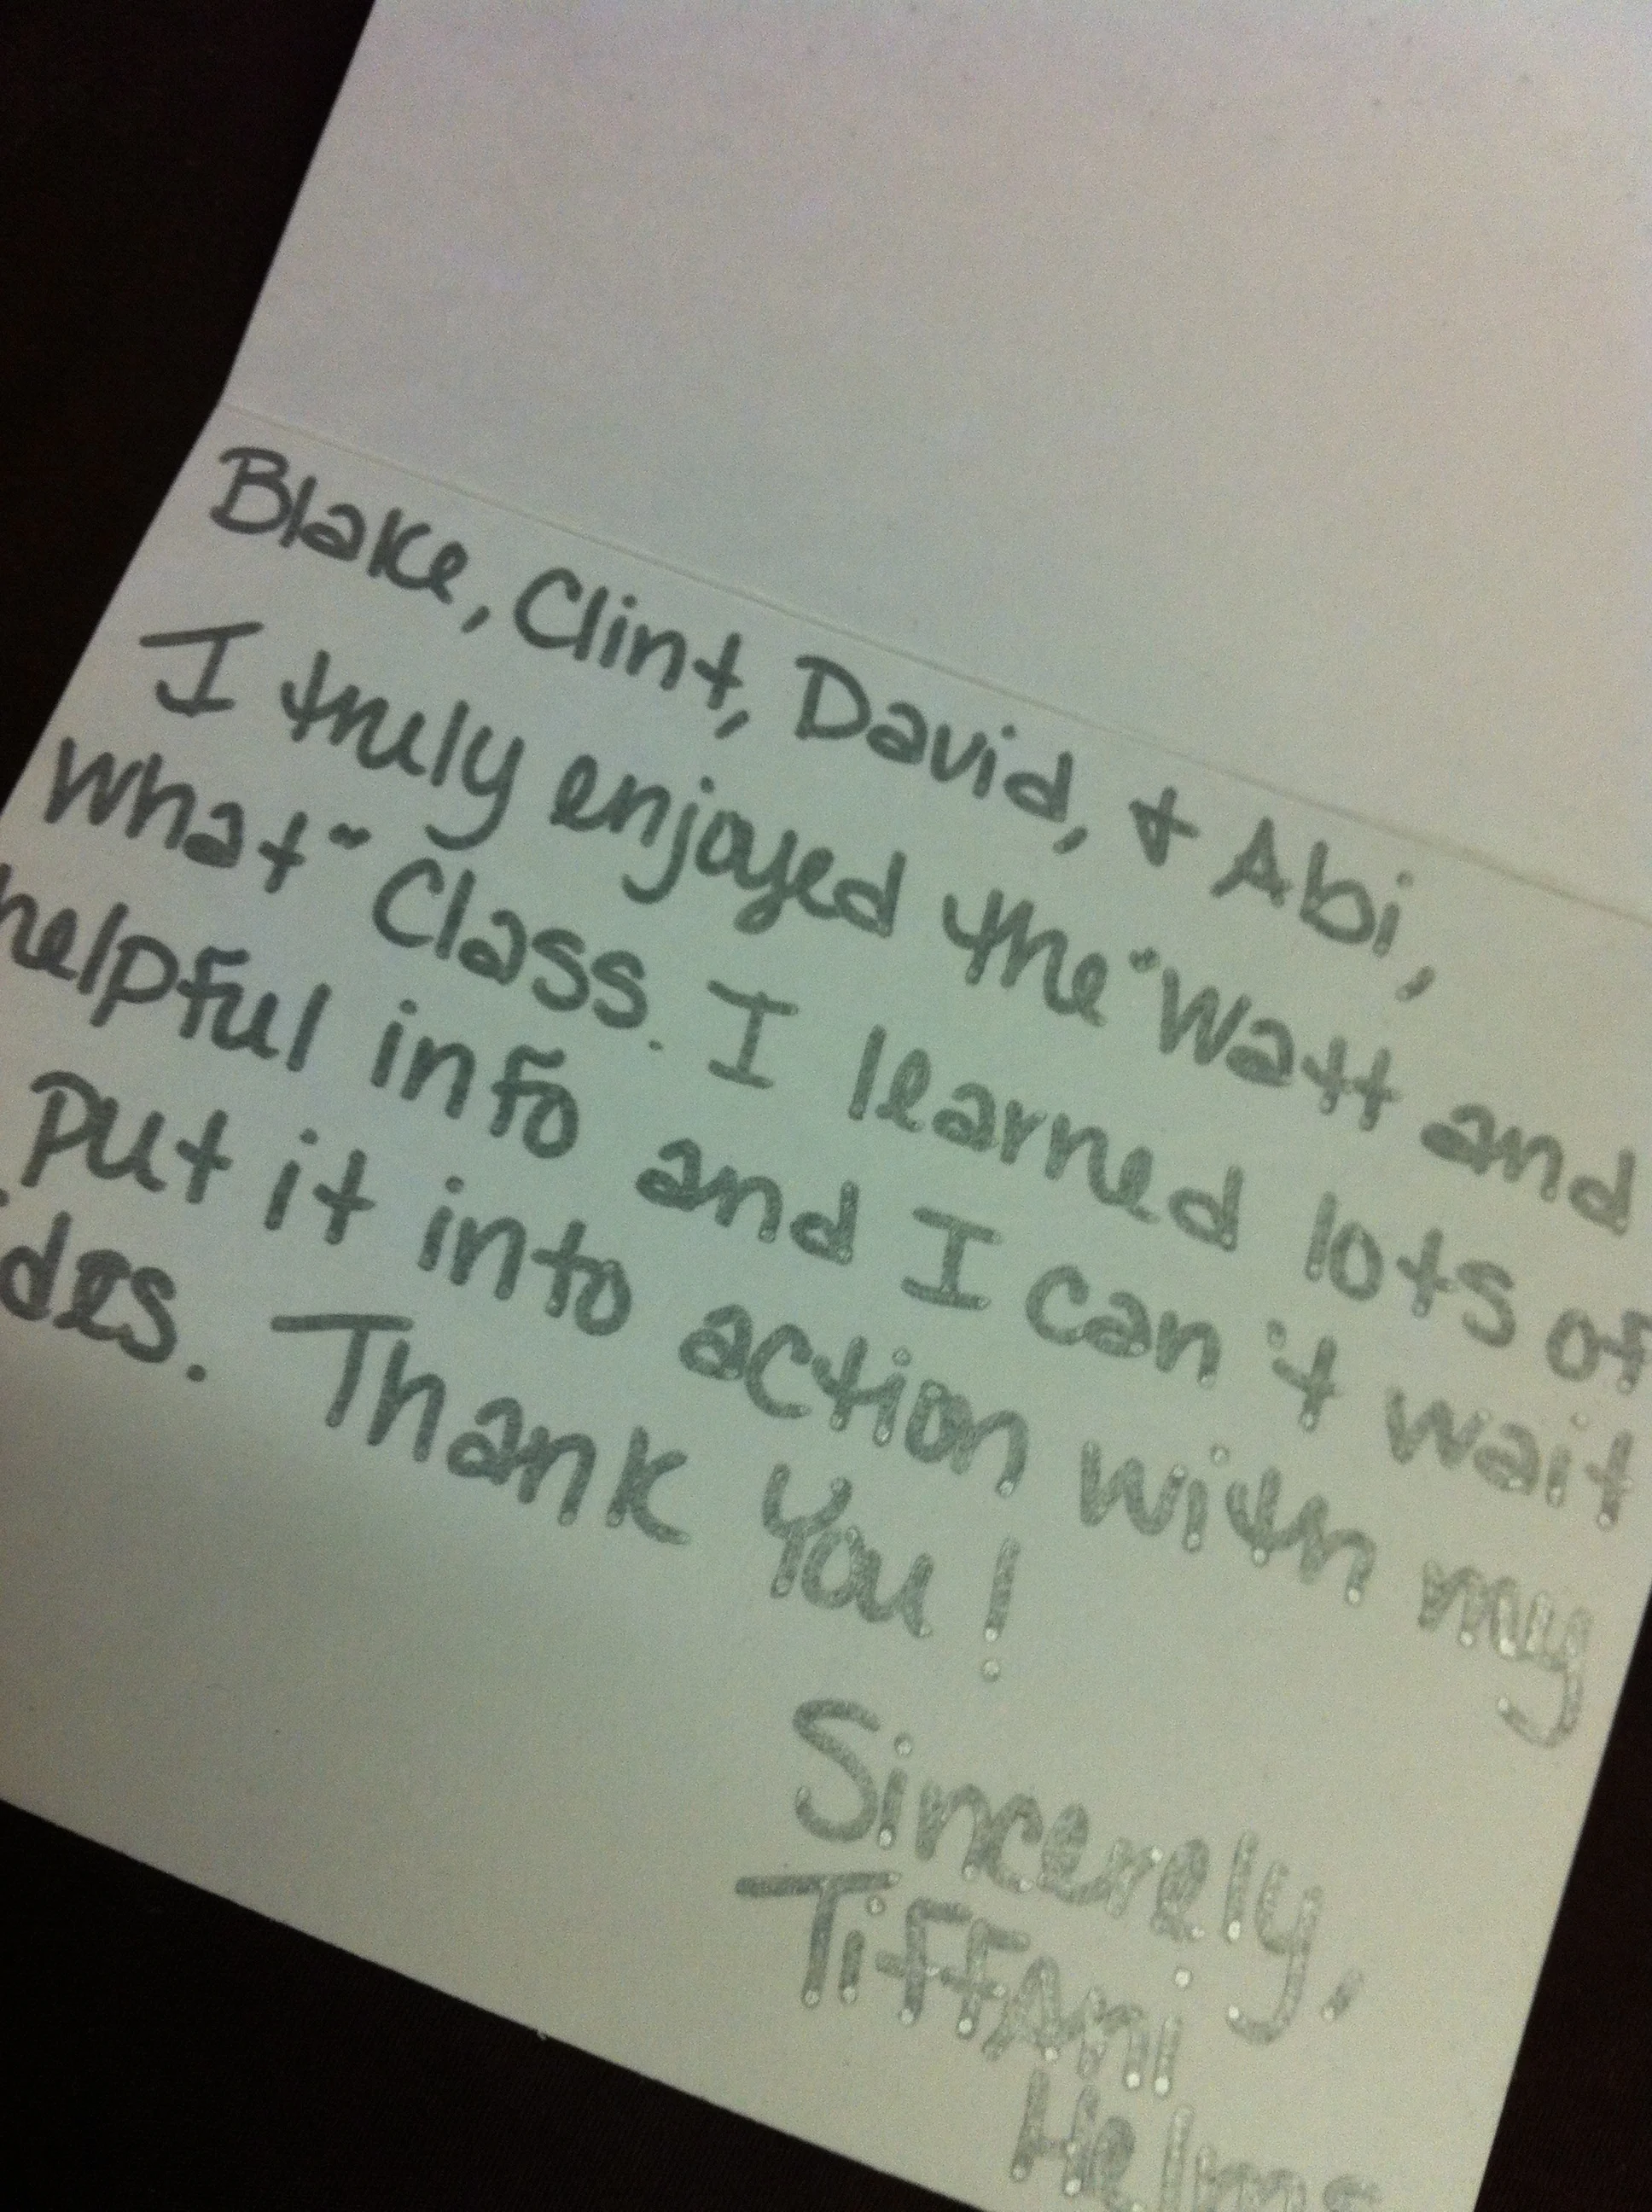 Blake, Clint, David, & Abi,
I truly enjoyed the "Watt and
what" Class. I learned lots of
helpful info and I can't wait
put it into action with my
des. Thank you!
Sincerely,
Tiffani
Helms